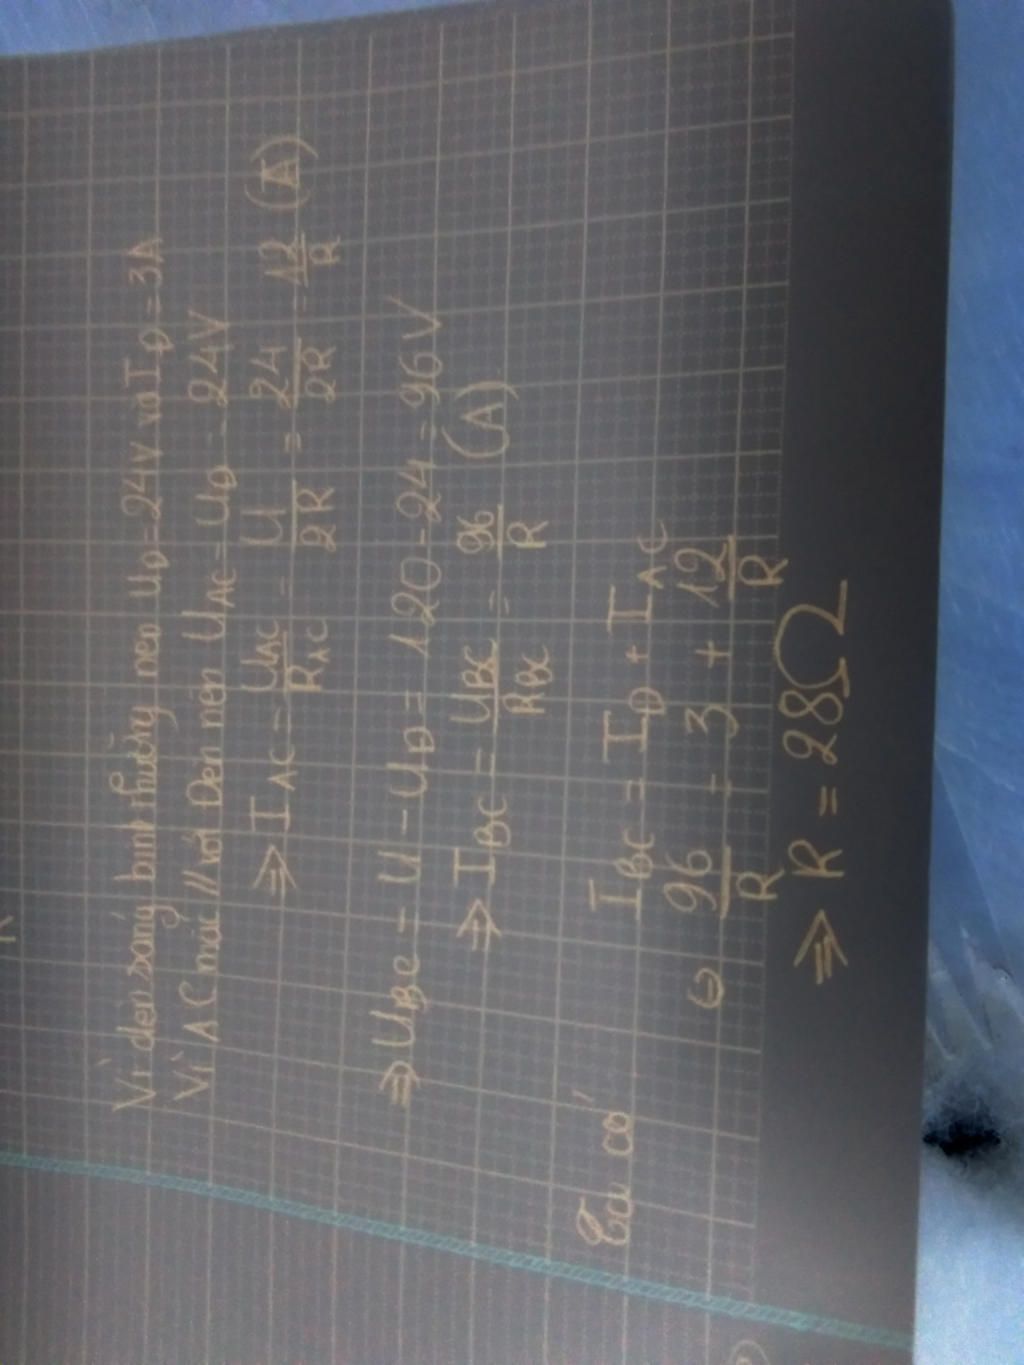 Vì đèn sáng bình thường nên U_Đ = 24V và I_Đ = 3A
Vì AC mắc // với Đèn nên U_AC = U_Đ = 24V
⇒ I_AC = U_AC/R_AC = U/2R = 24/2R = 12/R (A)
⇒ U_BC = U - U_Đ = 120 - 24 = 96V
⇒ I_BC = U_BC/R_BC = 96/R (A)
Ta có I_BC = I_Đ + I_AC
⇔ 96/R = 3 + 12/R
⇒ R = 28Ω